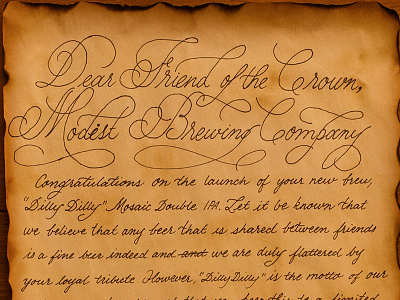 Dear Friend of the Crown,
Modest Brewing Company
Congratulations on the launch of your new brew,
"Dilly Dilly" Mosaic Double IPA. Let it be known that
we believe that any beer that is shared between friends
is a fine beer indeed and and we are duly flattered by
your loyal tribute. However, "Dilly Dilly" is the motto of our